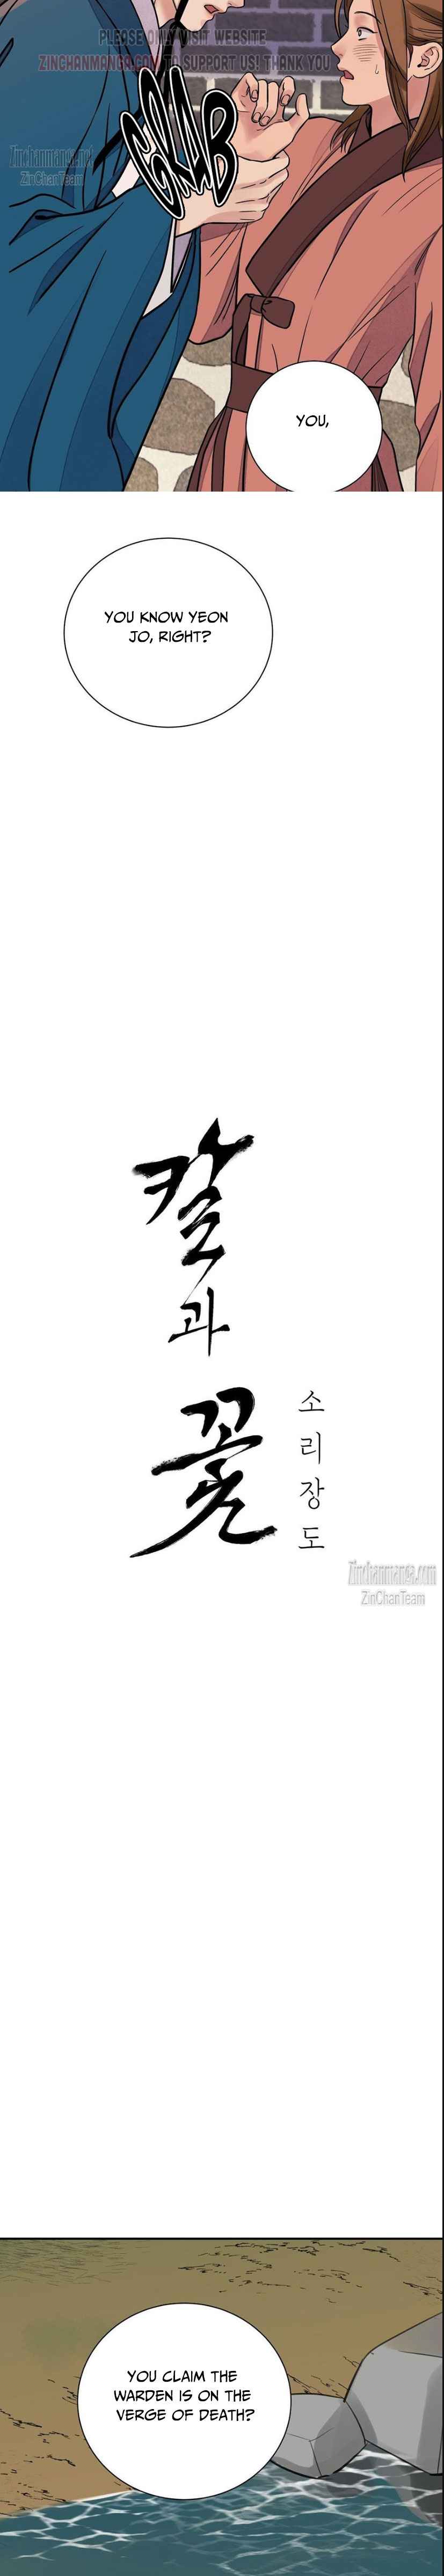 PLEASE ONLY VISIT WEBSITE
ZINCHANMANGA.COM TO SUPPORT US! THANK YOU
Zinchanmanga.net
ZinChanTeam
GRAB
YOU,
YOU KNOW YEON
JO, RIGHT?
칼
과
꽃
소
리
장
도
Zinchanmanga.com
ZinChanTeam
YOU CLAIM THE
WARDEN IS ON THE
VERGE OF DEATH?